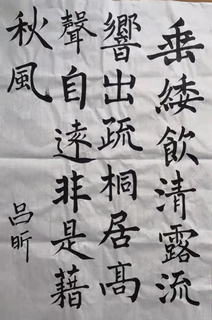 垂緌飲清露流
響出疏桐居高
聲自遠非是藉
秋風
呂昕